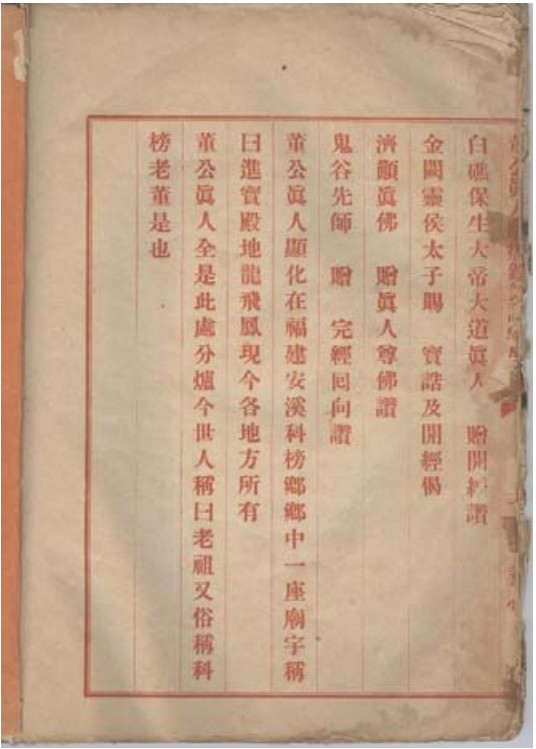 董公真人
白礁保生大帝大道眞人　贈開經讚
金闕靈侯太子賜　寶誥及開經偈
濟顚眞佛　贈眞人尊佛讚
鬼谷先師　贈　完經回向讚
董公眞人顯化在福建安溪科榜鄉鄉中一座廟宇稱
曰進寶殿地龍飛鳳現今各地方所有
董公眞人全是此處分爐今世人稱曰老祖又俗稱科
榜老董是也